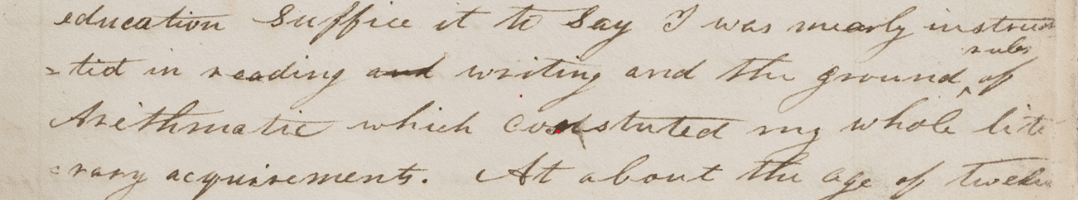 education Suffice it to Say I was mearly instruc
=tid in reading and writing and the ground rules of
Arithmatic which constuted my whole lite
=rary acquirements. At about the age of twelve